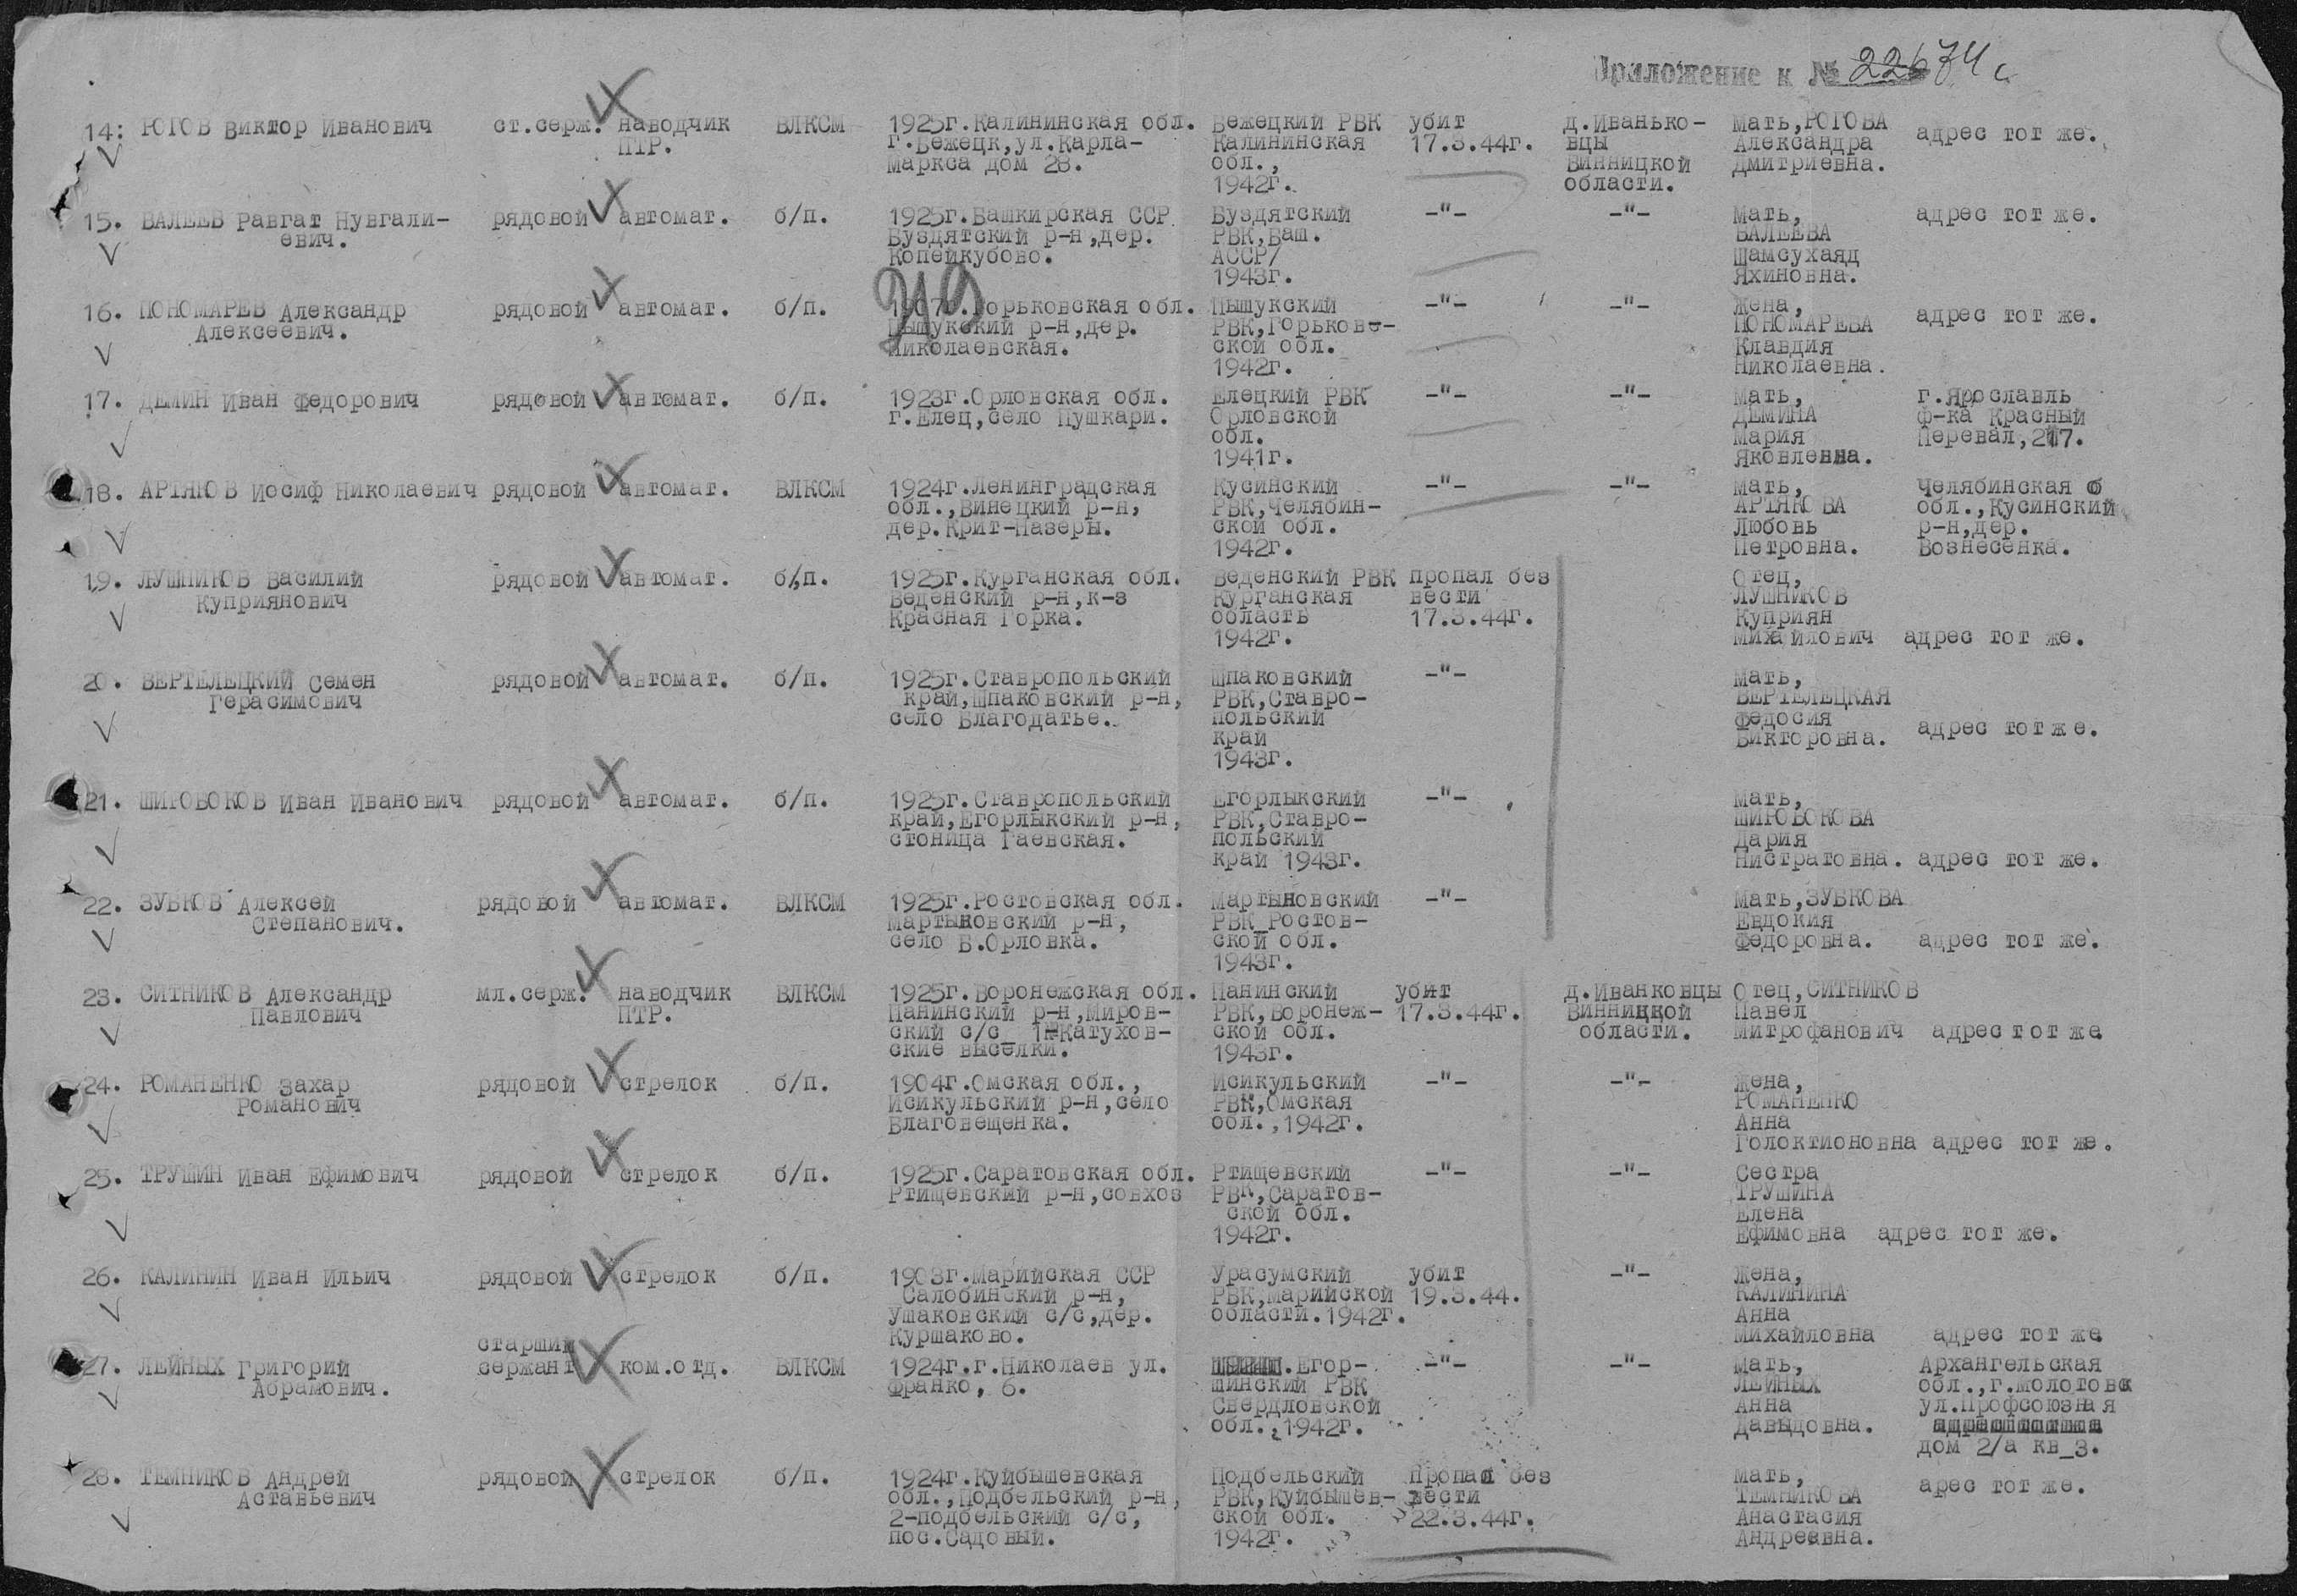 Приложение к № 22674с
14. РОГОВ Виктор Иванович ст.серж. наводчик ВЛКСМ 1925г.Калининская обл. Бежецкий РВК убит д.Иванько- Мать,РОГОВА адрес тот же.
ПТР. г.Бежецк,ул.Карла- Калининская 17.3.44г. вцы Александра
Маркса дом 28. обл., Винницкой Дмитриевна.
1942г. области.
15. ВАЛЕЕВ Равгат Нувгали- рядовой автомат. б/п. 1925г.Башкирская ССР Буздятский -"- -"- Мать, адрес тот же.
евич. Буздятский р-н,дер. РВК,Баш. ВАЛЕЕВА
Копейкубово. АССР/ Шамсухаяд
1943г. Яхиновна.
16. ПОНОМАРЕВ Александр рядовой автомат. б/п. 1907г.Горьковская обл. Пыщукский -"- -"- Жена, адрес тот же.
Алексеевич. Пыщукский р-н,дер. РВК,Горьков- ПОНОМАРЕВА
Николаевская. ской обл. Клавдия
1942г. Николаевна.
17. ДЕМИН Иван Федорович рядовой автомат. б/п. 1923г.Орловская обл. Елецкий РВК -"- -"- Мать, г.Ярославль
г.Елец,село Пушкари. Орловской ДЕМИНА ф-ка Красный
обл. Мария Перевал,217.
1941г. Яковлевна.
18. АРТЯКОВ Иосиф Николаевич рядовой автомат. ВЛКСМ 1924г.Ленинградская Кусинский -"- -"- Мать, Челябинская б
обл.,Винецкий р-н, РВК,Челябин- АРТЯКОВА обл.,Кусинский
дер.Крит-Назеры. ской обл. Любовь р-н,дер.
1942г. Петровна. Вознесенка.
19. ЛУШНИКОВ Василий рядовой автомат. б/п. 1925г.Курганская обл. Веденский РВК пропал без Отец,
Куприянович Веденский р-н,к-з Курганская вести ЛУШНИКОВ
Красная Горка. область 17.3.44г. Куприян
1942г. Михайлович адрес тот же.
20. ВЕРТЕЛЕЦКИЙ Семен рядовой автомат. б/п. 1925г.Ставропольский Шпаковский -"- Мать,
Герасимович край,Шпаковский р-н, РВК,Ставро- ВЕРТЕЛЕЦКАЯ
село Благодатье. польский Федосия
край Викторовна. адрес тот же.
1943г.
21. ШИРОБОКОВ Иван Иванович рядовой автомат. б/п. 1925г.Ставропольский Егорлыкский -"- Мать,
край,Егорлыкский р-н, РВК,Ставро- ШИРОБОКОВА
стоница Гаевская. польский Дария
край 1943г. Нистратовна. адрес тот же.
22. ЗУБКОВ Алексей рядовой автомат. ВЛКСМ 1925г.Ростовская обл. Мартыновский -"- Мать,ЗУБКОВА
Степанович. Мартыновский р-н, РВК_Ростов- Евдокия
село Б.Орловка. ской обл. Федоровна. адрес тот же.
1943г.
23. СИТНИКОВ Александр мл.серж. наводчик ВЛКСМ 1925г.Воронежская обл. Панинский убит д.Иванковцы Отец,СИТНИКОВ
Павлович ПТР. Панинский р-н,Миров- РВК,Воронеж- 17.3.44г. Винницкой Павел
ский с/с_ 1-Катухов- ской обл. области. Митрофанович адрес тот же
ские выселки. 1943г.
24. РОМАНЕНКО Захар рядовой стрелок б/п. 1904г.Омская обл., Исикульский -"- -"- Жена,
Романович Исикульский р-н,село РВК,Омская РОМАНЕНКО
Благовещенка. обл.,1942г. Анна
Голоктионовна адрес тот же.
25. ТРУШИН Иван Ефимович рядовой стрелок б/п. 1925г.Саратовская обл. Ртищевский -"- -"- Сестра
Ртищевский р-н,совхоз РВК,Саратов- ТРУШИНА
ской обл. Елена
1942г. Ефимовна адрес тот же.
26. КАЛИНИН Иван Ильич рядовой стрелок б/п. 1903г.Марийская ССР Урасумский убит -"- Жена,
Салобинский р-н, РВК,Марийской 19.3.44. КАЛИНИНА
Ушаковский с/с,дер. области.1942г. Анна
Куршаково. Михайловна адрес тот же
старший
27. ЛЕЙНЫХ Григорий сержант ком.отд. ВЛКСМ 1924г.г.Николаев ул. Егор- -"- -"- Мать, Архангельская
Абрамович. Франко, 6. шинский РВК ЛЕЙНЫХ обл.,г.Молотовск
Свердловской Анна ул.Профсоюзная
обл.,1942г. Давыдовна.
дом 2/а кв_3.
28. ТЕМНИКОВ Андрей рядовой стрелок б/п. 1924г.Куйбышевская Подбельский пропал без Мать, арес тот же.
Аставьевич обл.,Подбельский р-н, РВК,Куйбышев- вести ТЕМНИКОВА
2-подбельский с/с, ской обл. 22.3.44г. Анастасия
пос.Садовый. 1942г. Андреевна.